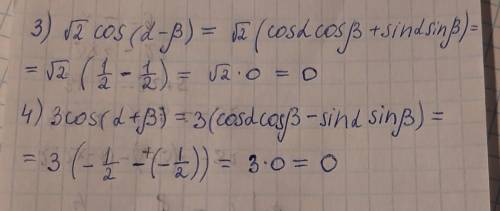 3) √2 cos(α-β) = √2 (cosα cosβ + sinα sinβ) =
= √2 (1/2 - 1/2) = √2 · 0 = 0
4) 3cos(α+β) = 3(cosα cosβ - sinα sinβ) =
= 3 (- 1/2 -⁺ (- 1/2)) = 3·0 = 0